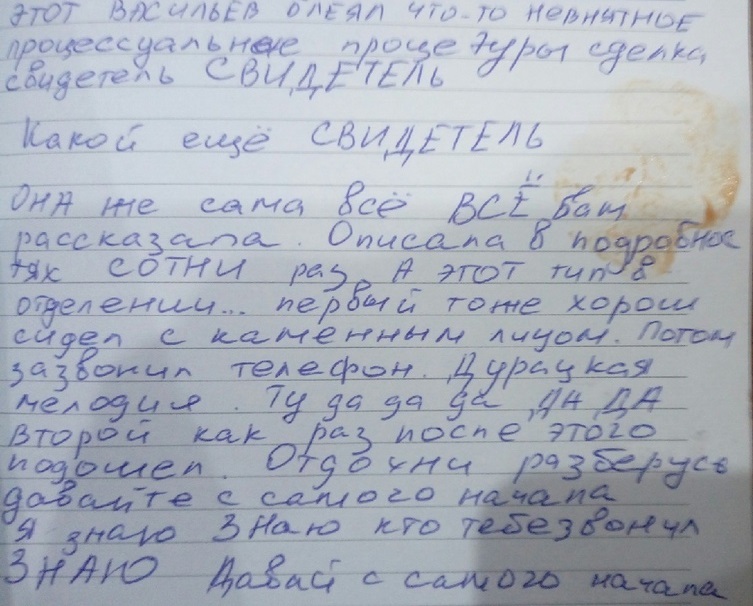 ЭТОТ ВАСИЛЬЕВ блеял что-то невнятное
процессуальные процедуры сделка
свидетель СВИДЕТЕЛЬ
Какой ещё СВИДЕТЕЛЬ
ОНА же сама всё ВСЁ вам
рассказала. Описала в подробнос
тях СОТНИ раз. А ЭТОТ тип в
отделении... первый тоже хорош
сидел с каменным лицом. Потом
зазвонил телефон. Дурацкая
мелодия. Ту да да да ДА ДА
второй как раз после этого
подошел. Отдохни разберусь
давайте с самого начала
Я знаю ЗНаю кто тебе звонил
ЗНАЮ Давай с самого начала